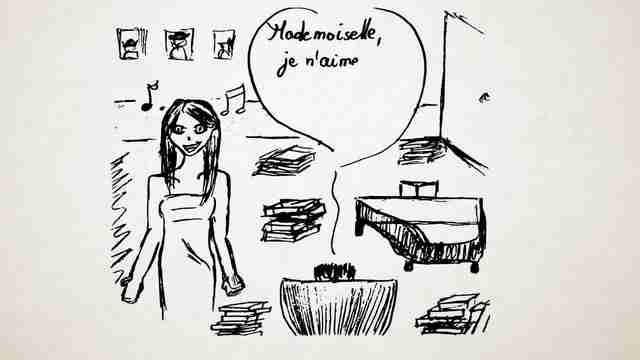 Mademoiselle,
je n'aime